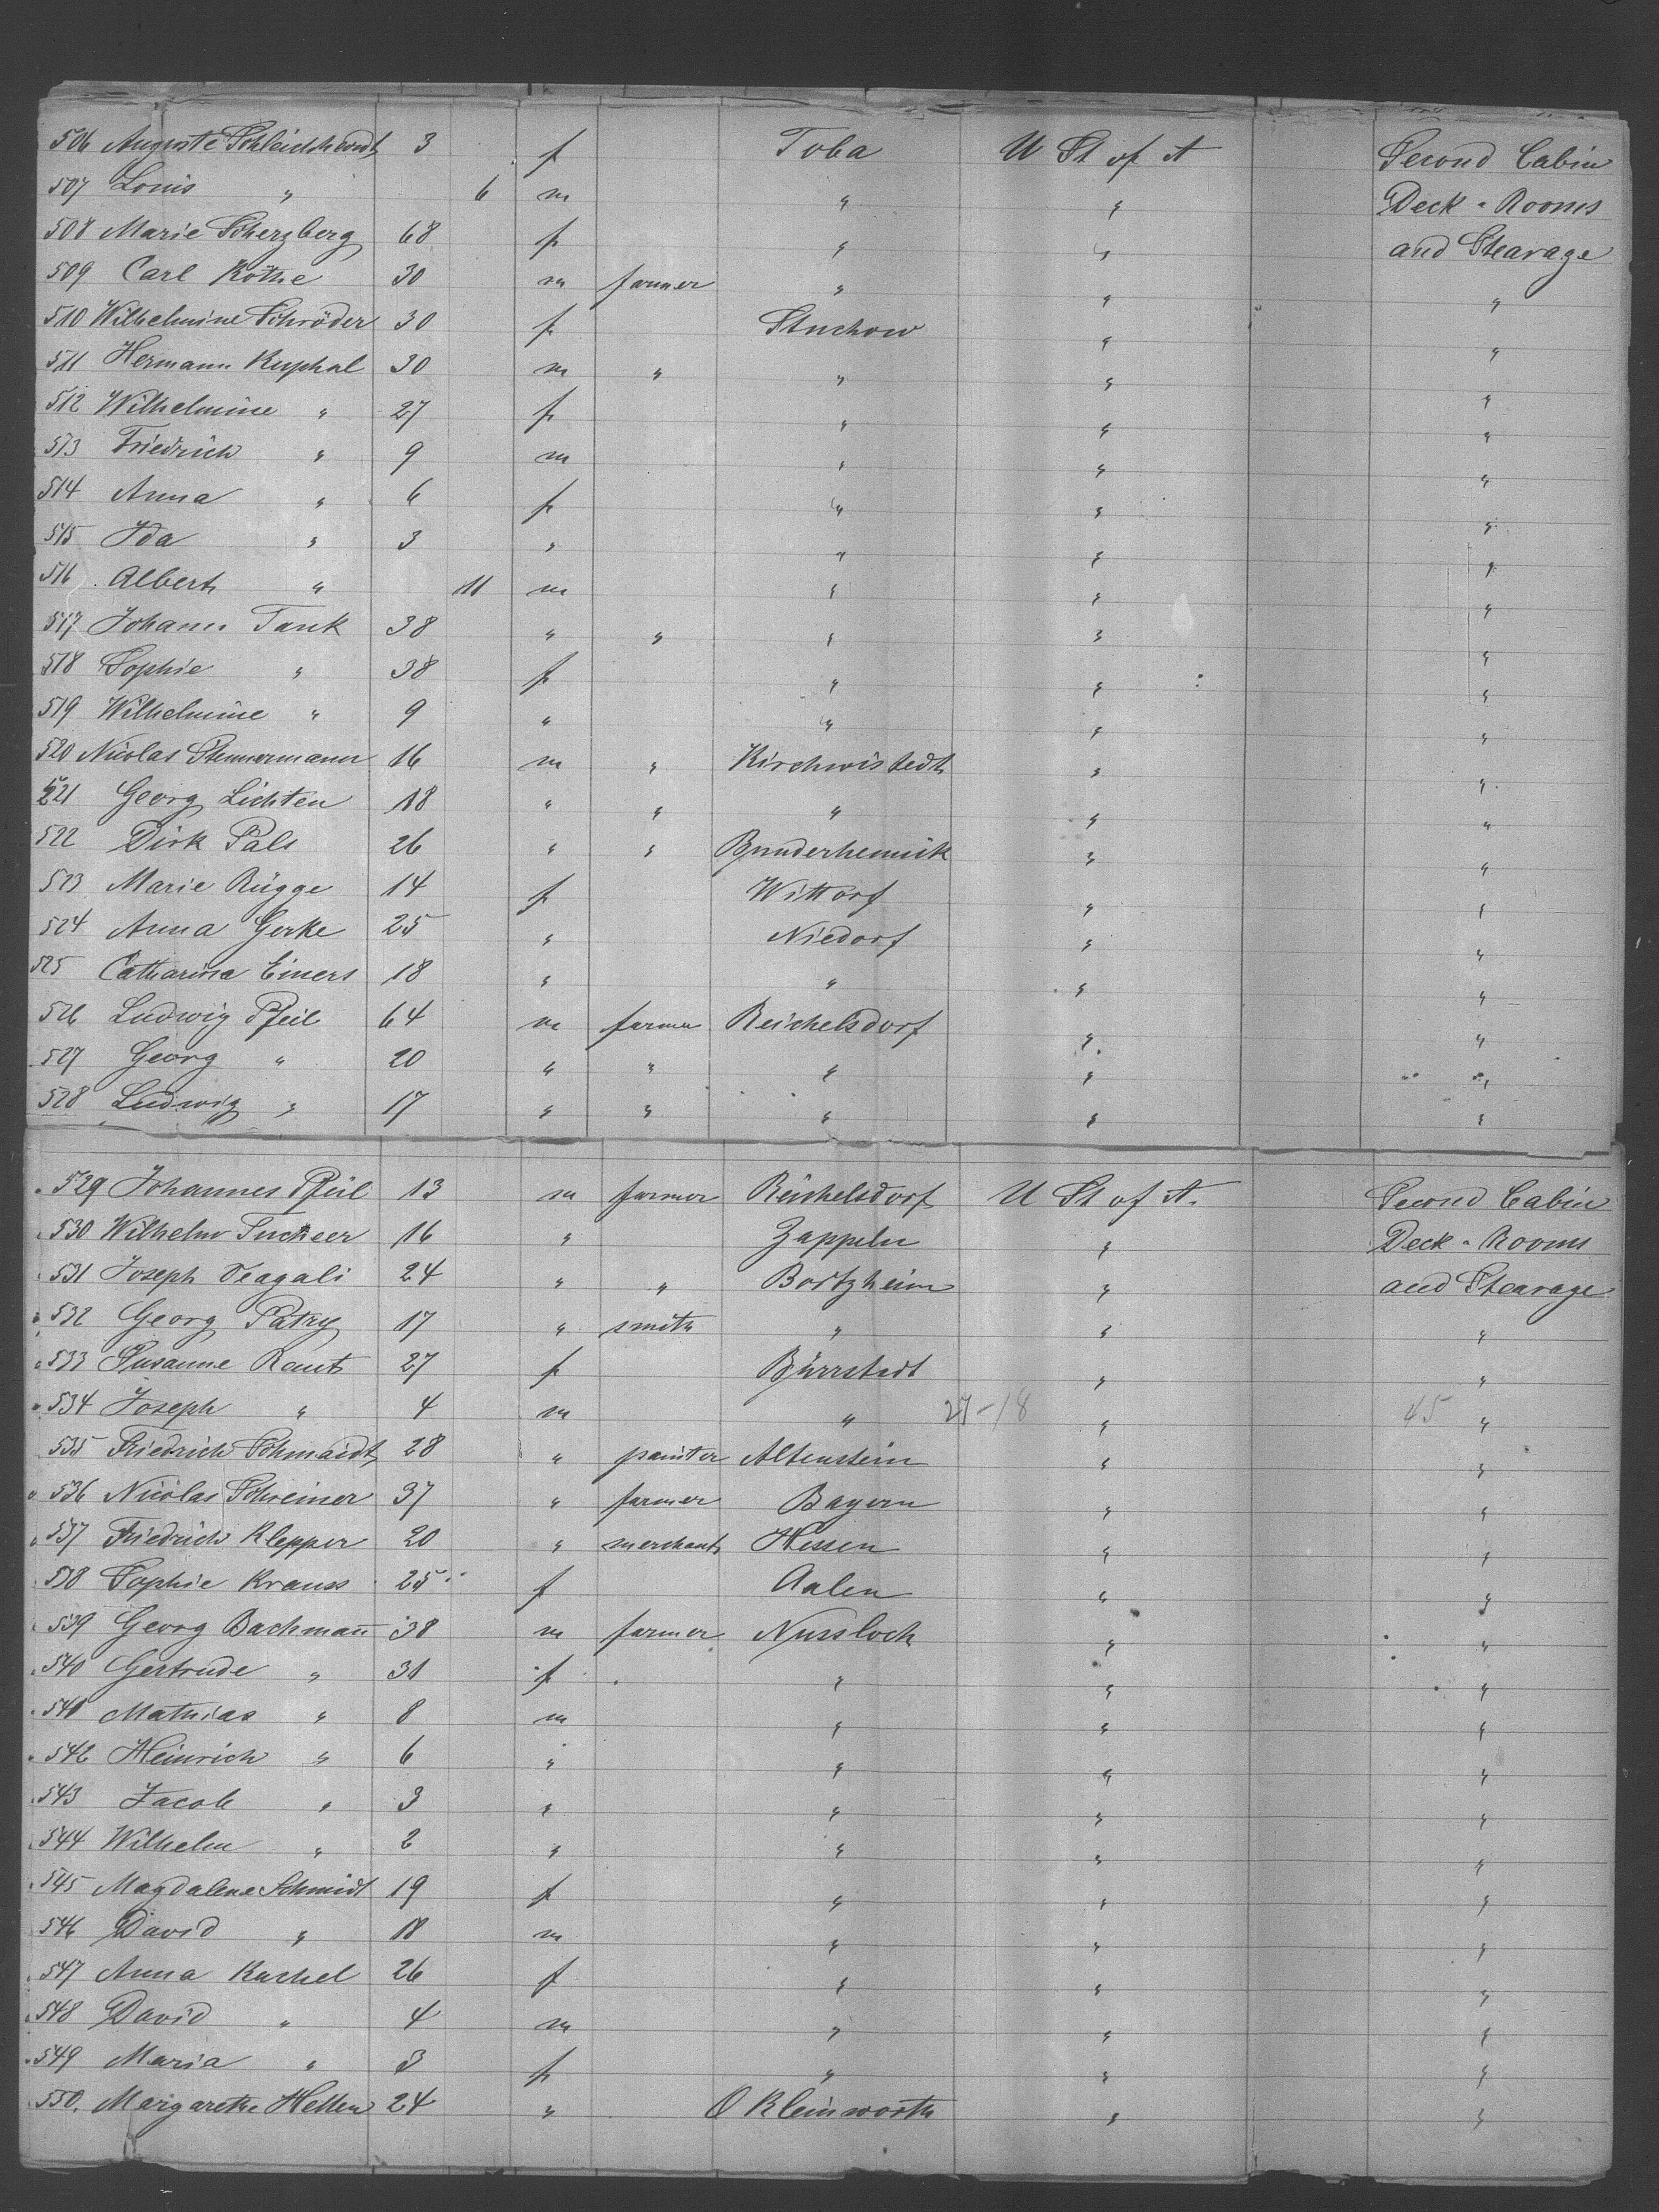 506 Auguste Schleichhardt 3 f Toba U St of A Second Cabin
507 Louis " 6 m " " Deck-Rooms
508 Marie Scherzberg 68 f " " and Stearage
509 Carl Köthe 30 m farmer " " "
510 Wilhelmine Schröder 30 f Stuchow " "
511 Hermann Kuphal 30 m " " " "
512 Wilhelmine " 27 f " " "
513 Friedrich " 9 m " " "
514 Anna " 6 f " " "
515 Ida " 3 " " " "
516 Albert " 11 m " " "
517 Johann Tank 38 " " " " "
518 Sophie " 38 f " " "
519 Wilhelmine " 9 " " " "
520 Nicolas Stemmermann 16 m " Kirchwistedt " "
521 Georg Lichten 18 " " " " "
522 Dirk Pals 26 " " Bunderhemrik " "
523 Marie Rügge 14 f Wittorf " "
524 Anna Gerke 25 " Niedorf " "
525 Catharina Einers 18 " " " "
526 Ludwig Pfeil 64 m farmer Reichelsdorf " "
527 Georg " 20 " " " " "
528 Ludwig " 17 " " " " "
529 Johannes Pfeil 13 m farmer Reichelsdorf U St of A. Second Cabin
530 Wilhelm Tuckeer 16 " Zappeln " Deck-Rooms
531 Joseph Veagali 24 " " Bortzheim " and Stearage
532 Georg Patry 17 " smith " " "
533 Susanne Raut 27 f Bürrstadt " "
534 Joseph " 4 m " 27-18 " 45 "
535 Friedrich Schmaidt 28 " painter Altenstein " "
536 Nicolas Schreiner 37 " farmer Bayern " "
537 Friedrich Klepper 20 " merchant Hessen " "
538 Sophie Krauss 25 f Aalen " "
539 Georg Bachmann 38 m farmer Nussloch " "
540 Gertrude " 31 f " " "
541 Mathias " 8 m " " "
542 Heinrich " 6 " " " "
543 Jacob " 3 " " " "
544 Wilhelm " 2 " " " "
545 Magdalene Schmidt 19 f " " "
546 David " 18 m " " "
547 Anna Kuchel 26 f " " "
548 David " 4 m " " "
549 Maria " 3 f " " "
550. Margarethe Hellen 24 " O Kleinworth " "